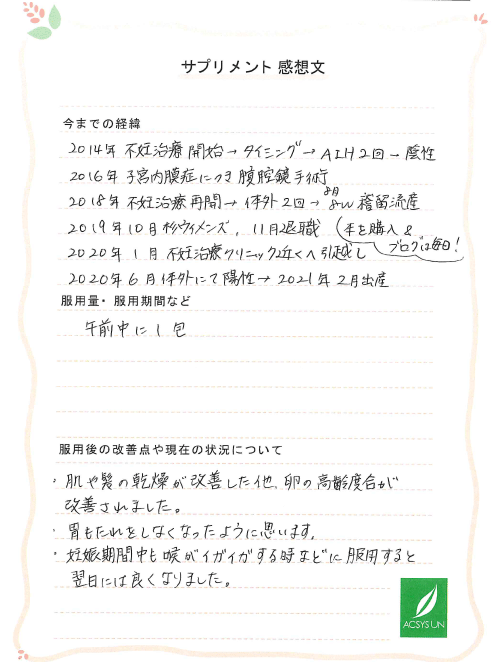 サプリメント 感想文
今までの経緯
2014年 不妊治療 開始→タイミング→AIH2回→陰性
2016年 子宮内膜症につき腹腔鏡手術
2018年 不妊治療再開→体外2回→8w 稽留流産
8月
2019年10月 杉ウイメンズ、11月退職 (本を購入&
ブログは毎日!
2020年1月 不妊治療クリニック近くへ引越し
2020年6月 体外にて陽性→2021年2月出産
服用量・服用期間など
午前中に1包
服用後の改善点や現在の状況について
・肌や髪の乾燥が改善した他、卵の高齢度合が
改善されました。
・胃もたれをしなくなったように思います。
・妊娠期間中も喉がイガイガする時などに服用すると
翌日には良くなりました。
ACSYSUN